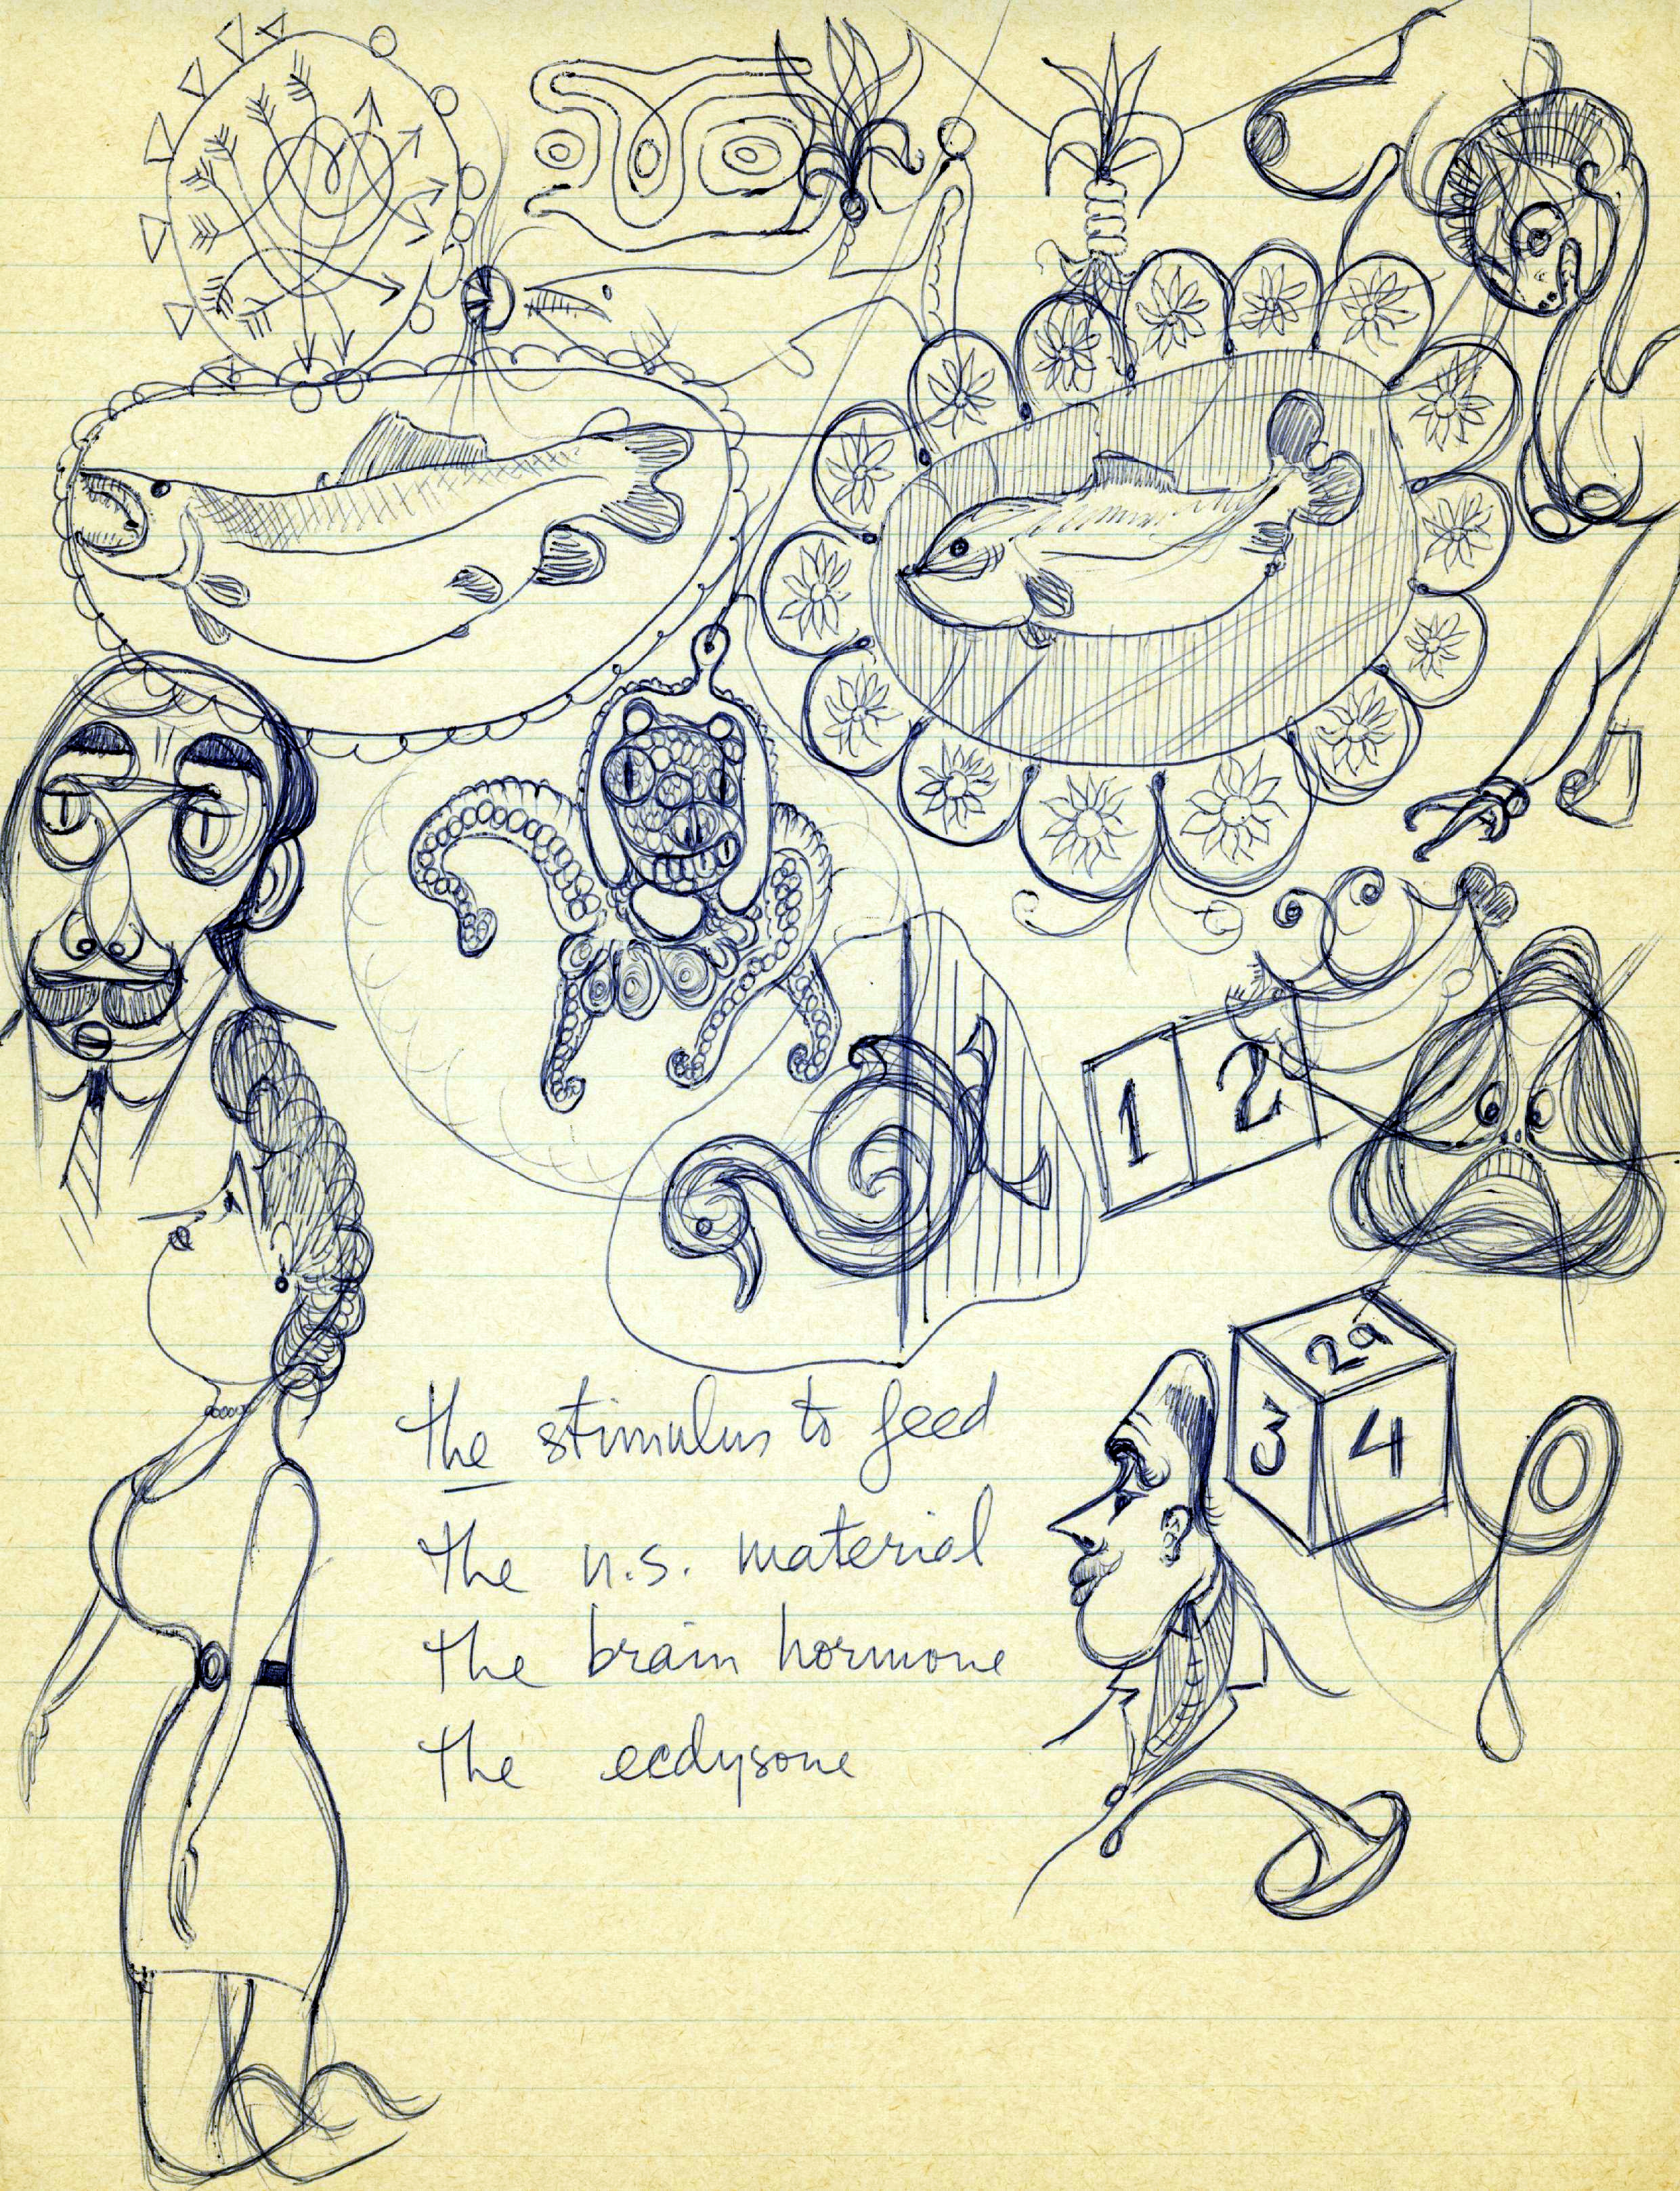 1 2
29
3 4
the stimulus to feed
the n.s. material
the brain hormone
the ecdysone